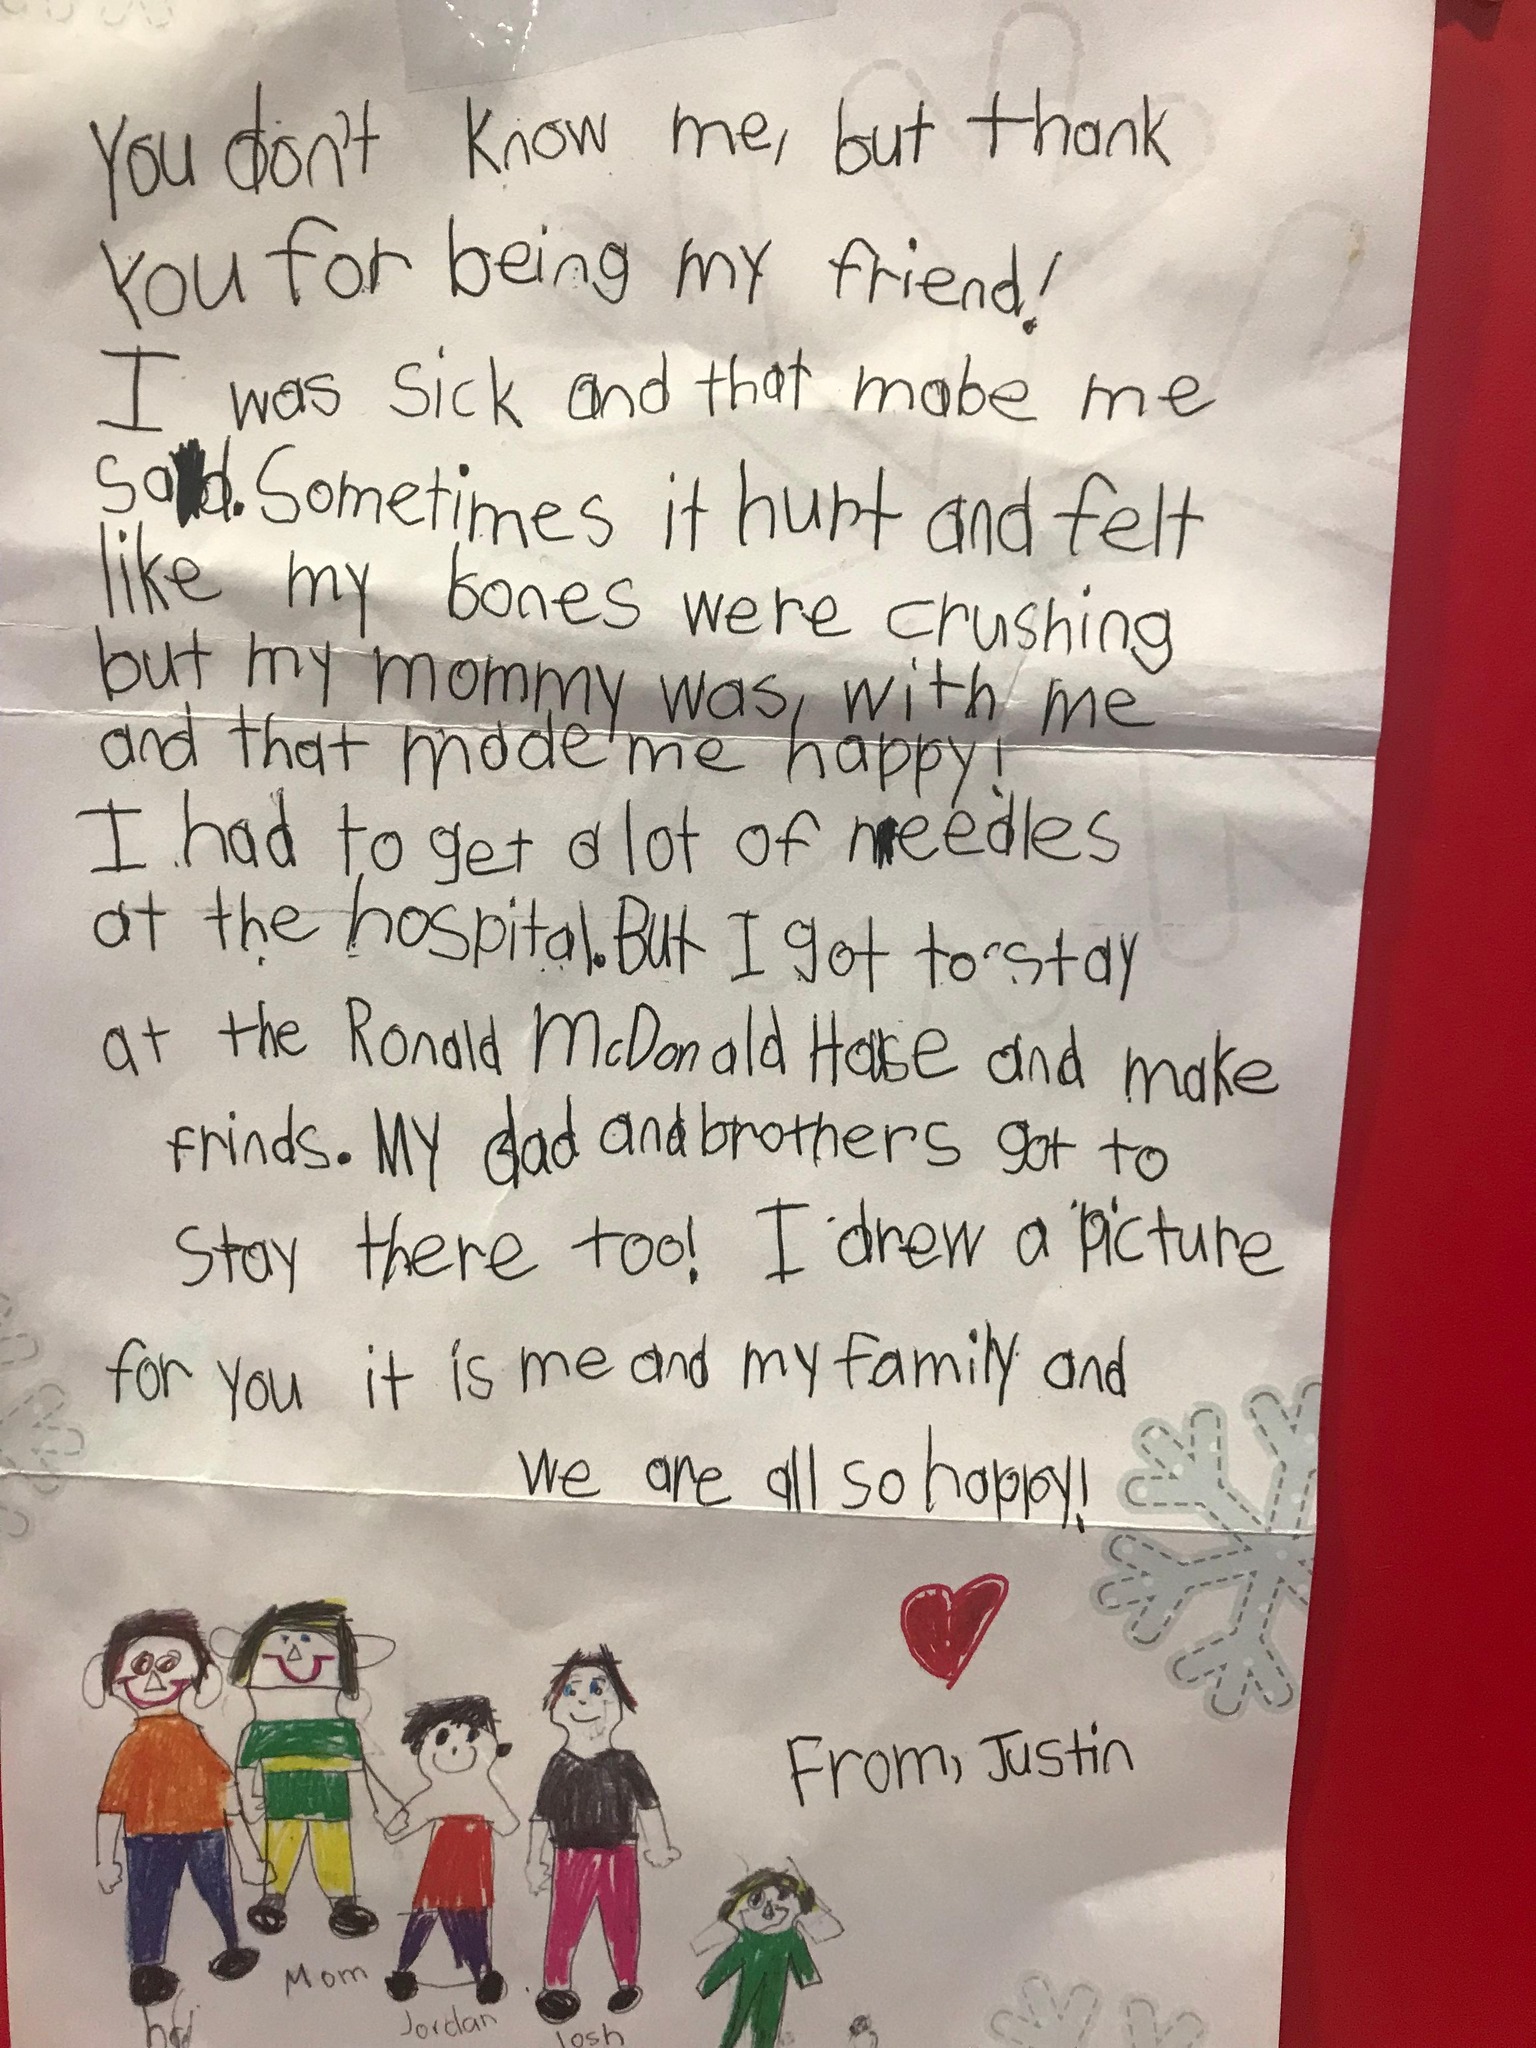 You don't know me, but thank
you for being my friend!
I was sick and that mabe me
sad. Sometimes it hurt and felt
like my bones were crushing
but my mommy was, with me
and that made me happy!
I had to get a lot of needles
at the hospital. But I got to stay
at the Ronald McDonald House and make
frinds. My dad and brothers got to
stay there too! I drew a picture
for you it is me and my family and
we are all so happy!
From, Justin
Mom
Jordan
Josh